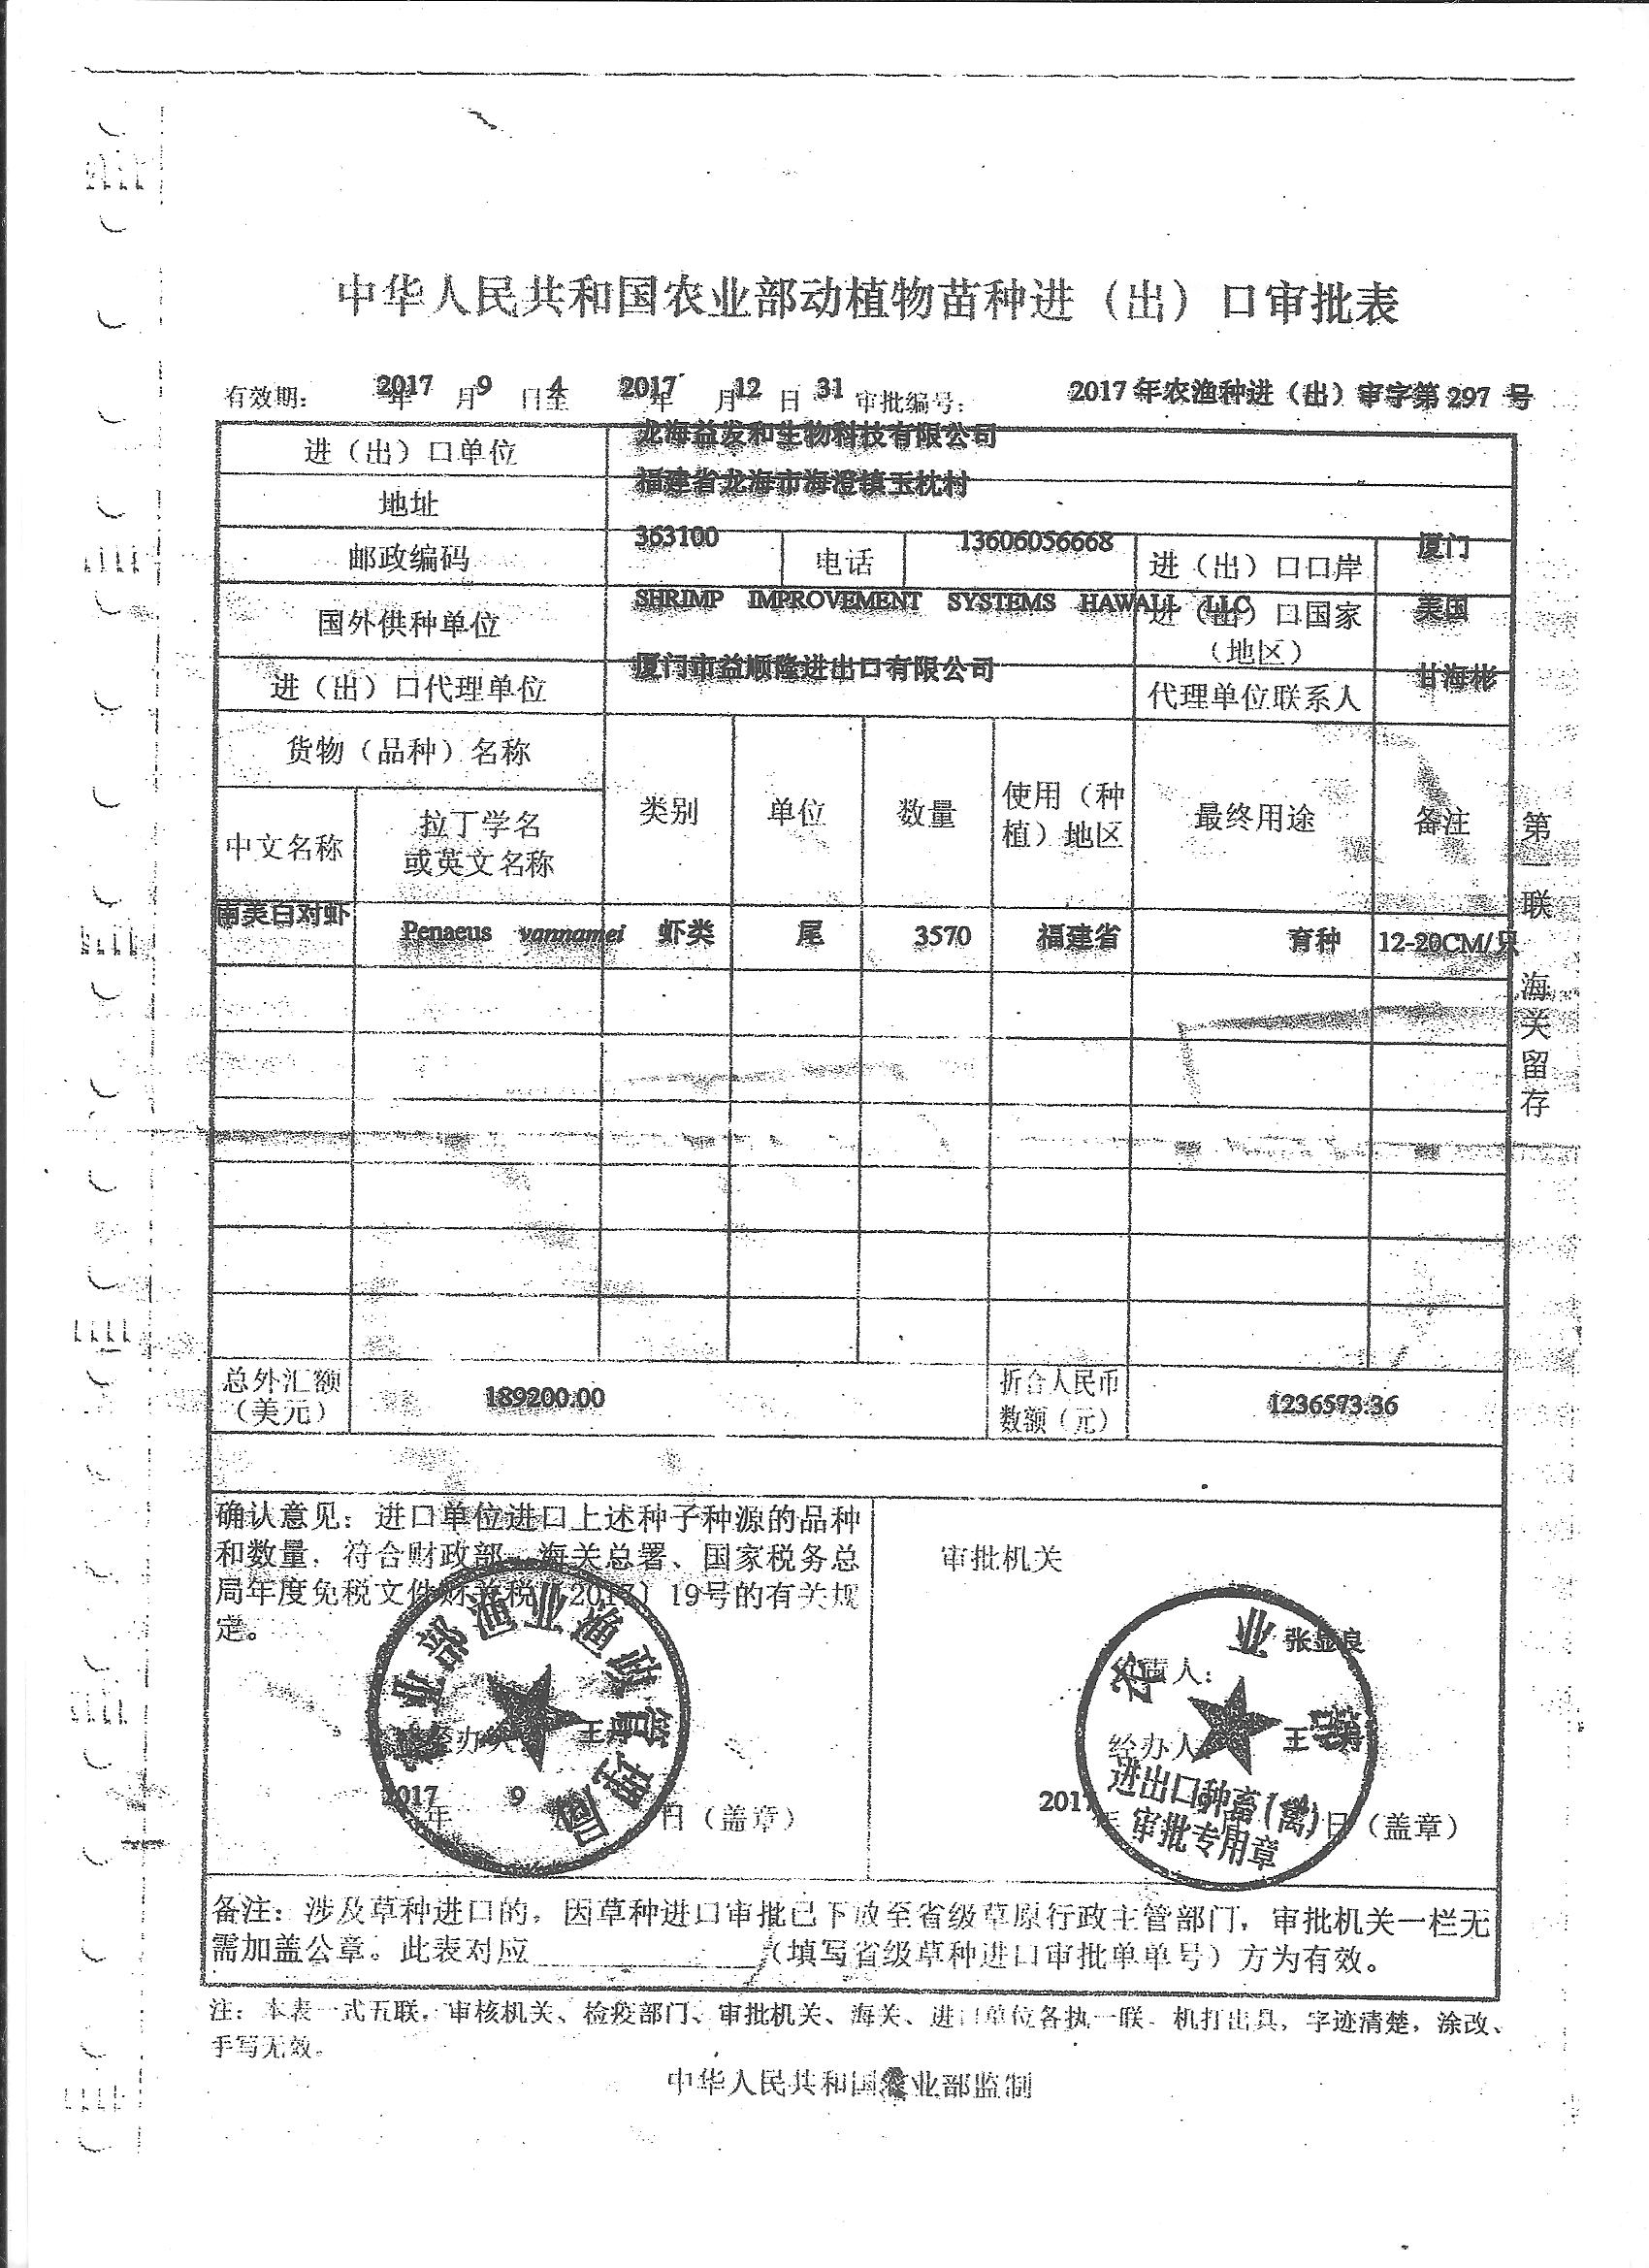 中华人民共和国农业部动植物苗种进（出）口审批表
有效期： 2017年 9月 4日至 2017年 12月 31日 审批编号： 2017年农渔种进（出）审字第297号
进（出）口单位 龙海益发和生物科技有限公司
地址 福建省龙海市海澄镇玉枕村
邮政编码 363100 电话 13606056668 进（出）口口岸 厦门
国外供种单位 SHRIMP IMPROVEMENT SYSTEMS HAWALL LLC 进（出）口国家（地区） 美国
进（出）口代理单位 厦门市益顺隆进出口有限公司 代理单位联系人 甘海彬
货物（品种）名称 类别 单位 数量 使用（种植）地区 最终用途 备注
中文名称 拉丁学名或英文名称
南美白对虾 Penaeus vannamei 虾类 尾 3570 福建省 育种 12-20CM/只
第一联 海关留存
总外汇额（美元） 189200.00 折合人民币数额（元） 1236573.36
确认意见：进口单位进口上述种子种源的品种
和数量，符合财政部、海关总署、国家税务总
局年度免税文件财关税〔2017〕19号的有关规
定。
业部渔业渔政管理局
经办人 王
2017年 9 日（盖章）
审批机关
负责人： 张显良
经办人 王
农业
进出口种畜(禽)
审批专用章
2017年 日（盖章）
备注：涉及草种进口的，因草种进口审批已下放至省级草原行政主管部门，审批机关一栏无
需加盖公章。此表对应（填写省级草种进口审批单单号）方为有效。
注：本表一式五联，审核机关、检疫部门、审批机关、海关、进口单位各执一联。机打出具，字迹清楚，涂改、
手写无效。
中华人民共和国农业部监制